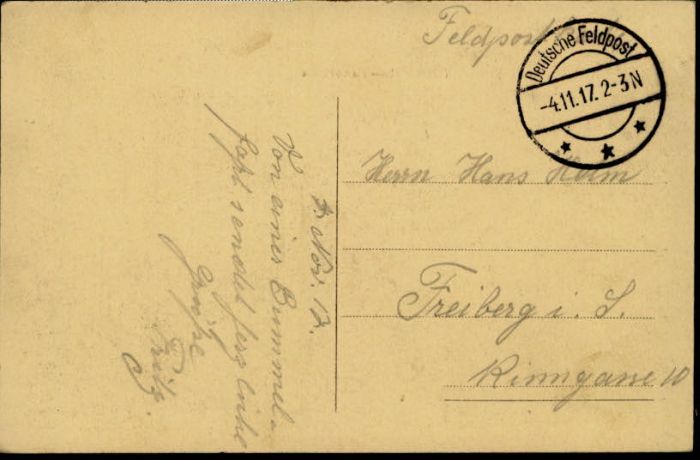 Feldpost
Deutsche Feldpost
-4.11.17. 2-3N
Herrn Hans Helm
Freiberg i. S.
Rinngasse 10
Nov. 17.
Von einer Bummel-
fahrt sendet herzliche
Grüße
Fritz.